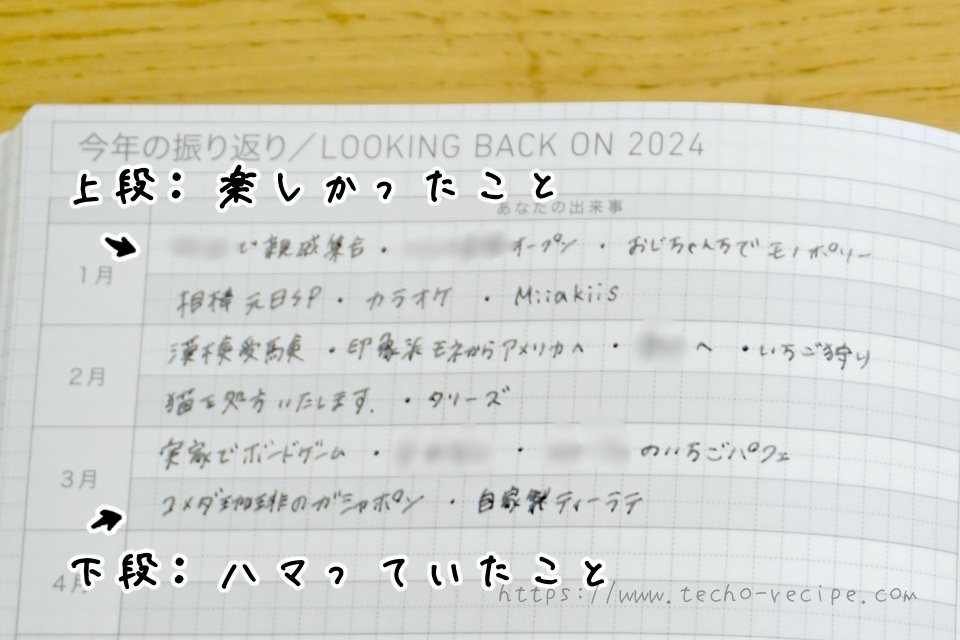 今年の振り返り／LOOKING BACK ON 2024
上段：楽しかったこと
あなたの出来事
1月
で親戚集合・ オープン ・ おじちゃんちでモノポリー
相棒 元日SP ・ カラオケ ・ Miiakiis
2月
漢検受験 ・印象派 モネからアメリカへ ・ へ ・いちご狩り
猫を処方いたします。 ・ タリーズ
3月
実家でボードゲーム ・ ・ のいちごパフェ
コメダ珈琲のガシャポン ・ 自家製ティーラテ
下段：ハマっていたこと
4月
https://www.techo-recipe.com